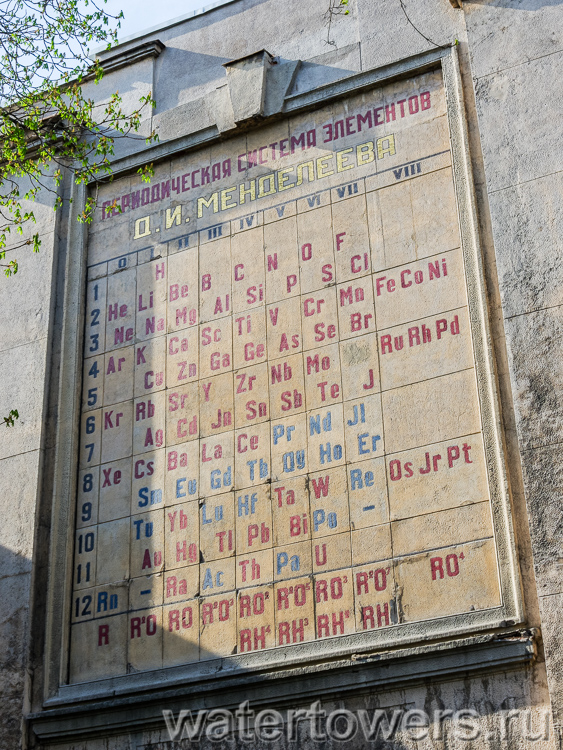 ПЕРИОДИЧЕСКАЯ СИСТЕМА ЭЛЕМЕНТОВ
Д. И. МЕНДЕЛЕЕВА
O I II III IV V VI VII VIII
1 H
2 He Li Be B C N O F
3 Ne Na Mg Al Si P S Cl
4 Ar K Ca Sc Ti V Cr Mn Fe Co Ni
5 Cu Zn Ga Ge As Se Br
6 Kr Rb Sr Y Zr Nb Mo Ru Rh Pd
7 Ag Cd Jn Sn Sb Te J
8 Xe Cs Ba La Ce Pr Nd Jl
9 Sm Eu Gd Tb Dy Ho Er
10 Tu Yb Lu Hf Ta W Re Os Jr Pt
11 Au Hg Tl Pb Bi Po -
12 Rn - Ra Ac Th Pa U
R R²O RO R²O³ RO² R²O⁵ RO³ R²O⁷ RO⁴
RH⁴ RH³ RH² RH
www.watertowers.ru